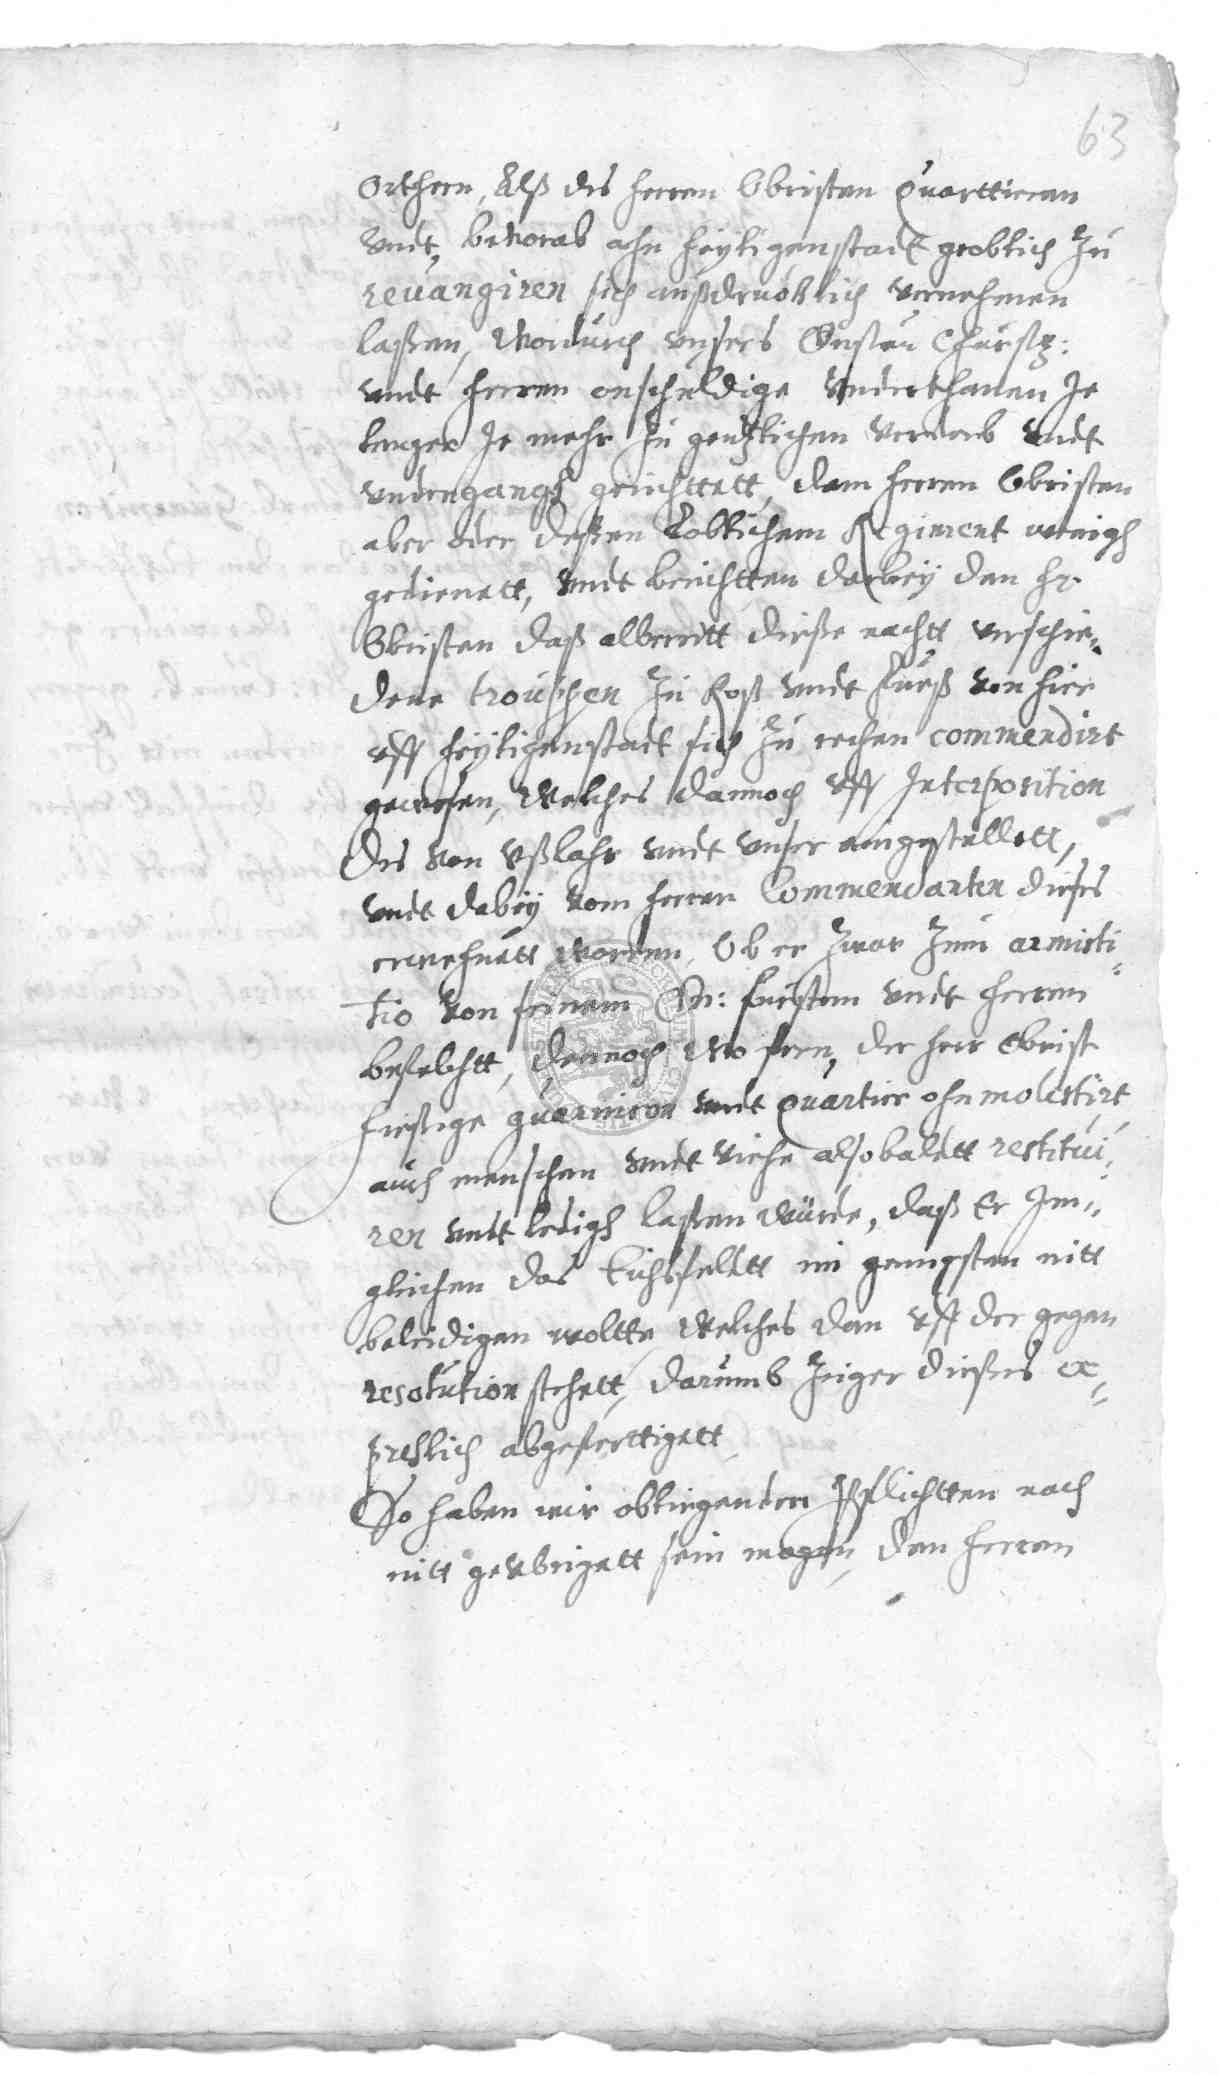 63
Orthern, Alß des herren Obristen Quarttieren
Vndt, bevorab ahn Heyligenstadt groblich Zu
revangiren sich außdrucklich vernehmen
laßen, Wordurch vnsers Gnsten Churfst:
vndt herren onschuldige Vnderthanen Je
lenger Je mehr Zu gentzlichen verderb Vndt
vndergangh gerichttett, dem herren Obristen
aber oder deßen Loblichem Regiment wenigh
gedienett, Vndt berichtten darbey den Hr
Obristen daß albereitt dieße nachtt verschie-
dene trouppen Zu Roß Vndt Fueß von hier
vff Heyligenstadt sich Zu rechen commendirt
gewesen, Welches dannoch Vff Interposition
des von Vßlahr Vndt Vnser eingestellett,
vndt dabey vom herren Commendanten dieses
erwehnett worden, Ob er Zwar Zum armisti-
tio von seinem Gn: Fursten Vndt herren
befelchtt, dennoch Wo fern, der herr Obrist
hießige guarnison Vndt Quartier ohnmolestirt
auch menschen Vndt Viehe alsobaldtt restitui-
ren Vndt ledigh laßen würde, daß Er Im-
gleichen das Eichsfeldtt im geringsten nitt
beleidigen woltte, Welches dan Vff der gegen
resolution stehett, darumb Zeiger dießes ex-
preßlich abgeferttigett
So haben wir obliegenden Pflichtten nach
nitt gevbrigett sein mogen, den herren